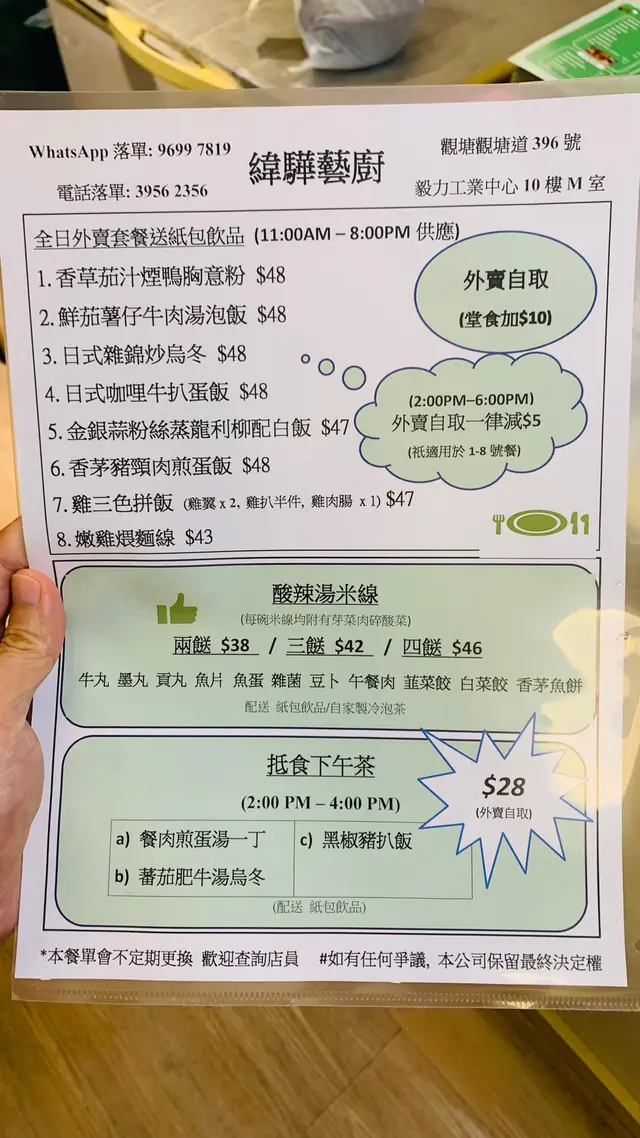 WhatsApp 落單: 9699 7819
緯驊藝廚
觀塘觀塘道 396 號
電話落單: 3956 2356
毅力工業中心 10 樓 M 室
全日外賣套餐送紙包飲品 (11:00AM – 8:00PM 供應)
1. 香草茄汁煙鴨胸意粉 $48
2. 鮮茄薯仔牛肉湯泡飯 $48
3. 日式雜錦炒烏冬 $48
4. 日式咖哩牛扒蛋飯 $48
5. 金銀蒜粉絲蒸龍利柳配白飯 $47
6. 香茅豬頸肉煎蛋飯 $48
7. 雞三色拼飯 (雞翼 x 2, 雞扒半件, 雞肉腸 x 1) $47
8. 嫩雞煨麵線 $43
外賣自取
(堂食加$10)
(2:00PM–6:00PM)
外賣自取一律減$5
(祇適用於 1-8 號餐)
酸辣湯米線
(每碗米線均附有芽菜肉碎酸菜)
兩餸 $38 / 三餸 $42 / 四餸 $46
牛丸 墨丸 貢丸 魚片 魚蛋 雜菌 豆卜 午餐肉 韮菜餃 白菜餃 香茅魚餅
配送 紙包飲品/自家製冷泡茶
抵食下午茶
(2:00 PM – 4:00 PM)
$28
(外賣自取)
a) 餐肉煎蛋湯一丁
c) 黑椒豬扒飯
b) 蕃茄肥牛湯烏冬
(配送 紙包飲品)
*本餐單會不定期更換 歡迎查詢店員 #如有任何爭議, 本公司保留最終決定權